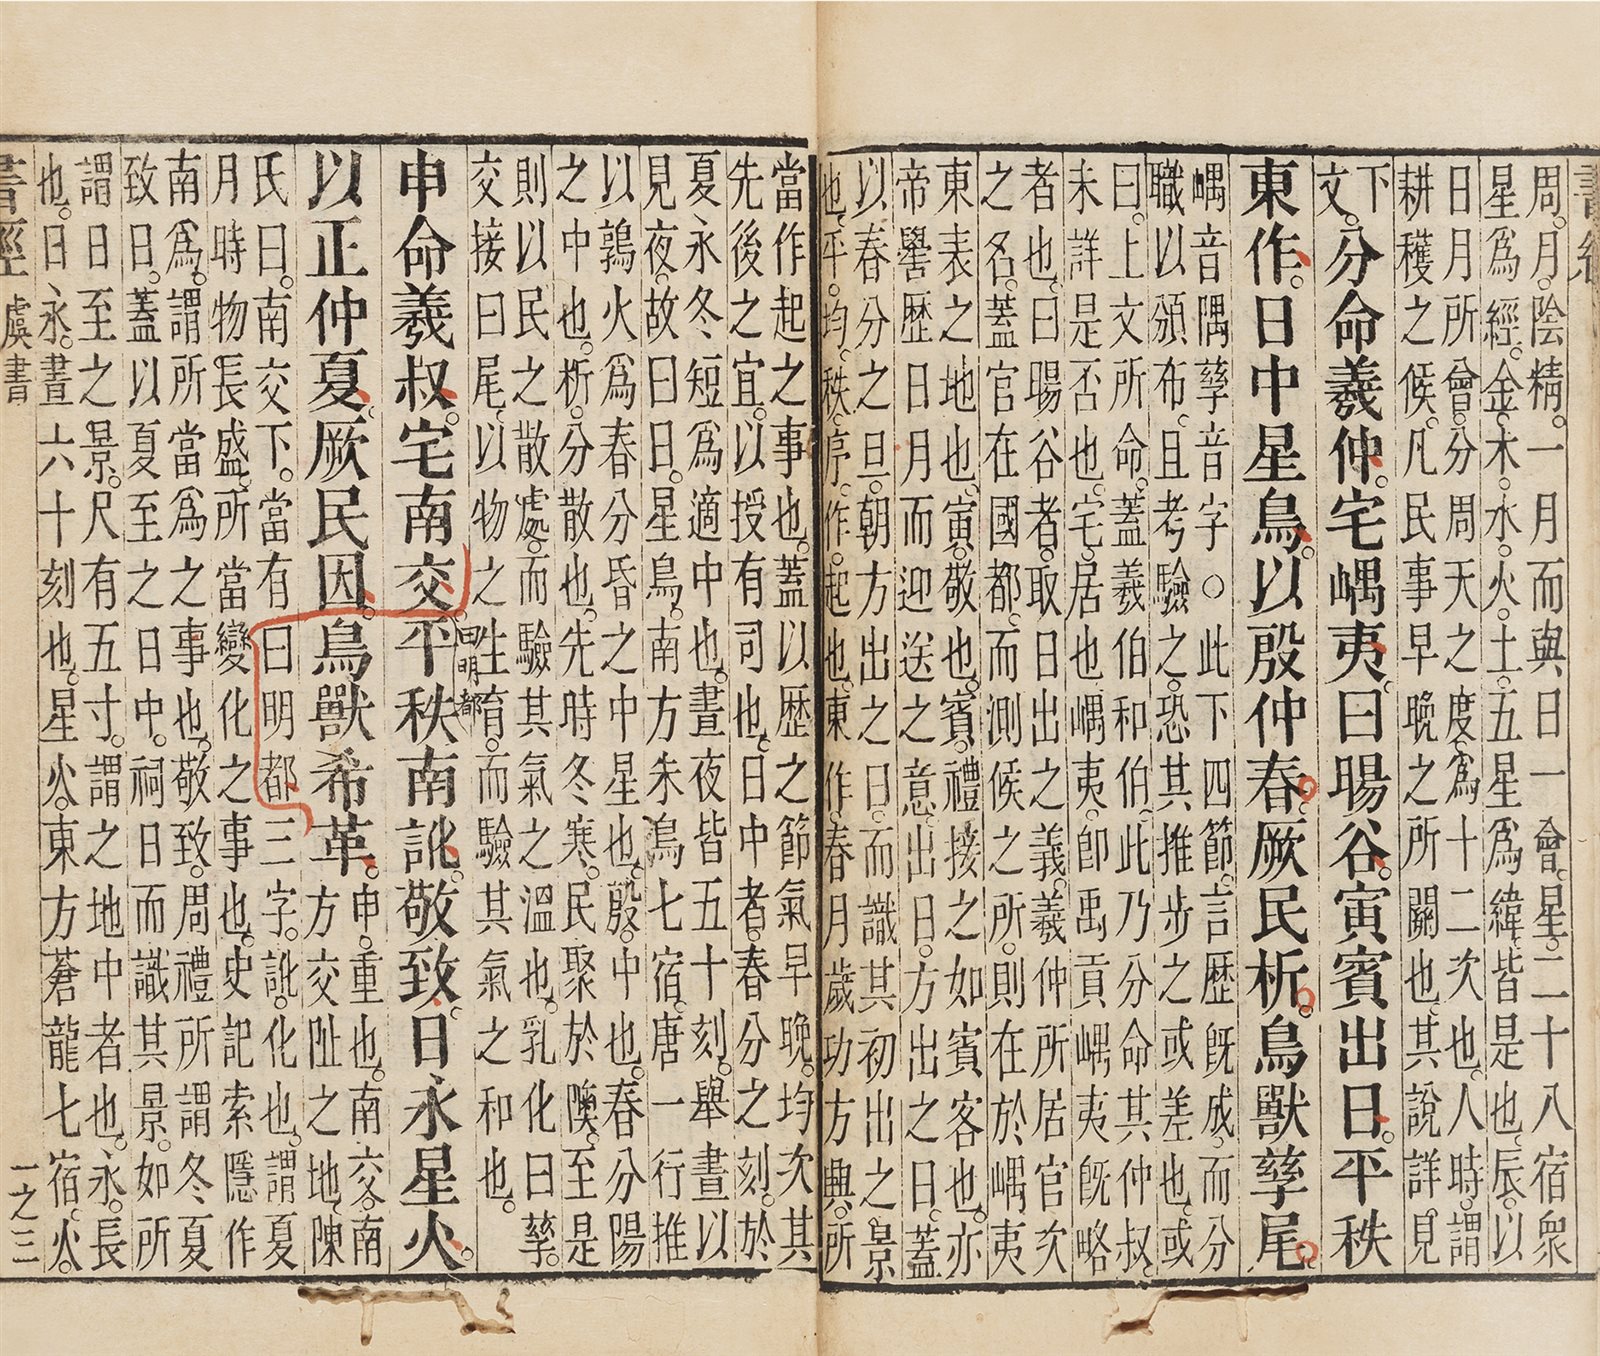 書經
周。月。陰精。一月而與日一會。星。二十八宿衆
星爲經。金。木。水。火。土。五星爲緯。皆是也。辰。以
日月所會。分周天之度。爲十二次也。人時。謂
耕穫之候。凡民事早晚之所關也。其說詳見
下文。分命羲仲。宅嵎夷。曰暘谷。寅賓出日。平秩
東作。日中星鳥。以殷仲春。厥民析。鳥獸孳尾。
嵎音隅孳音字。○此下四節。言歷旣成。而分
職以頒布。且考驗之。恐其推步之或差也。或
曰。上文所命。蓋羲伯和伯。此乃分命其仲叔。
未詳是否也。宅。居也。嵎夷。卽禹貢嵎夷旣略
者也。曰暘谷者。取日出之義。羲仲所居官次
之名。蓋官在國都。而測候之所。則在於嵎夷
東表之地也。寅。敬也。賓。禮接之如賓客也。亦
帝嚳歷日月而迎送之意。出日。方出之日。蓋
以春分之旦。朝方出之日。而識其初出之景
也。平。均。秩。序。作。起也。東作。春月歲功方興。所
當作起之事也。蓋以歷之節氣早晚。均次其
先後之宜。以授有司也。日中者。春分之刻。於
夏永冬短爲適中也。晝夜皆五十刻。舉晝以
見夜。故曰日。星鳥。南方朱鳥七宿。唐一行推
以鶉火爲春分昏之中星也。殷。中也。春分陽
之中也。析。分散也。先時冬寒。民聚於隩。至是
則以民之散處。而驗其氣之溫也。乳化曰孳。
交接曰尾。以物之生育。而驗其氣之和也。
曰明都
申命羲叔。宅南交。平秩南訛。敬致。日永星火。
以正仲夏。厥民因。鳥獸希革。申。重也。南交。南
方交趾之地。陳
氏曰。南交下。當有曰明都三字。訛。化也。謂夏
月時物長盛。所當變化之事也。史記索隱作
南爲。謂所當爲之事也。敬致。周禮所謂冬夏
致日。蓋以夏至之日中。祠日而識其景。如所
謂日至之景。尺有五寸。謂之地中者也。永。長
也。日永。晝六十刻也。星火。東方蒼龍七宿。火。
書經 虞書 一之三